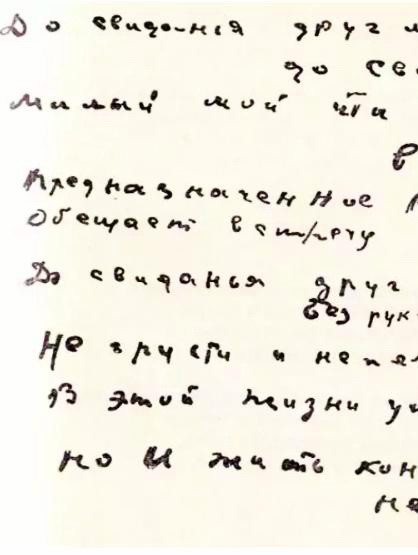 До свиданья друг м
до св
милый мой ты
в
Предназначенное р
Обещает встречу
До свиданья друг
без рук
Не грусти и не пе
В этой жизни ум
но и жить кон
не